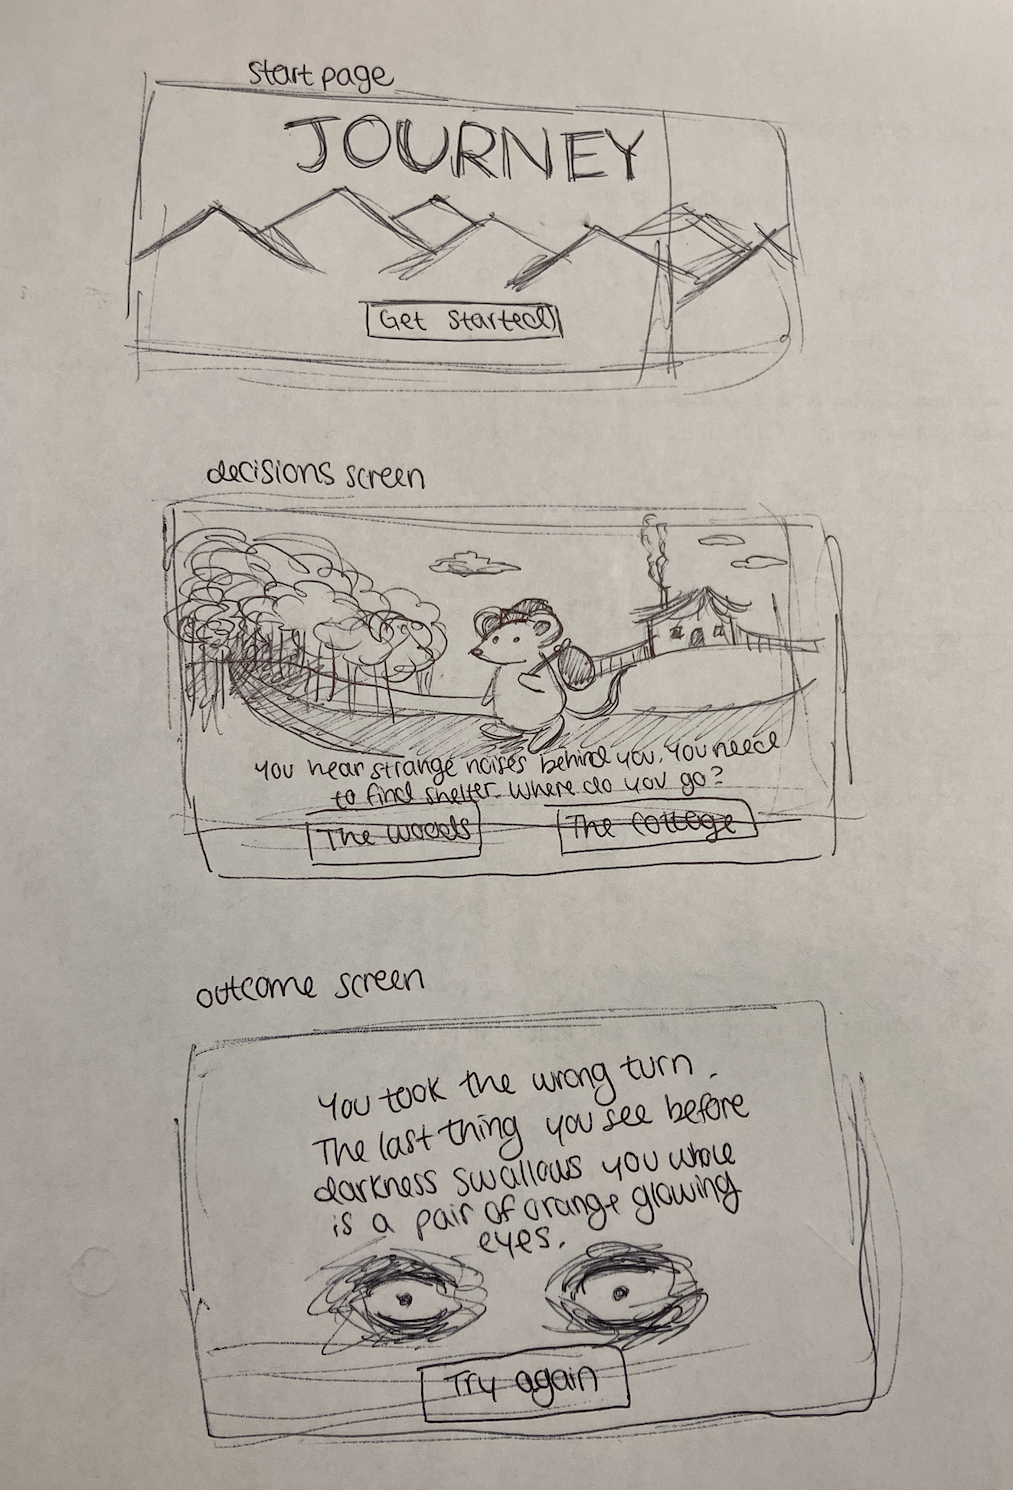 start page
JOURNEY
Get started
decisions screen
You hear strange noises behind you. You need
to find shelter. Where do you go?
The woods
The cottage
outcome screen
You took the wrong turn.
The last thing you see before
darkness swallows you whole
is a pair of orange glowing
eyes.
Try again